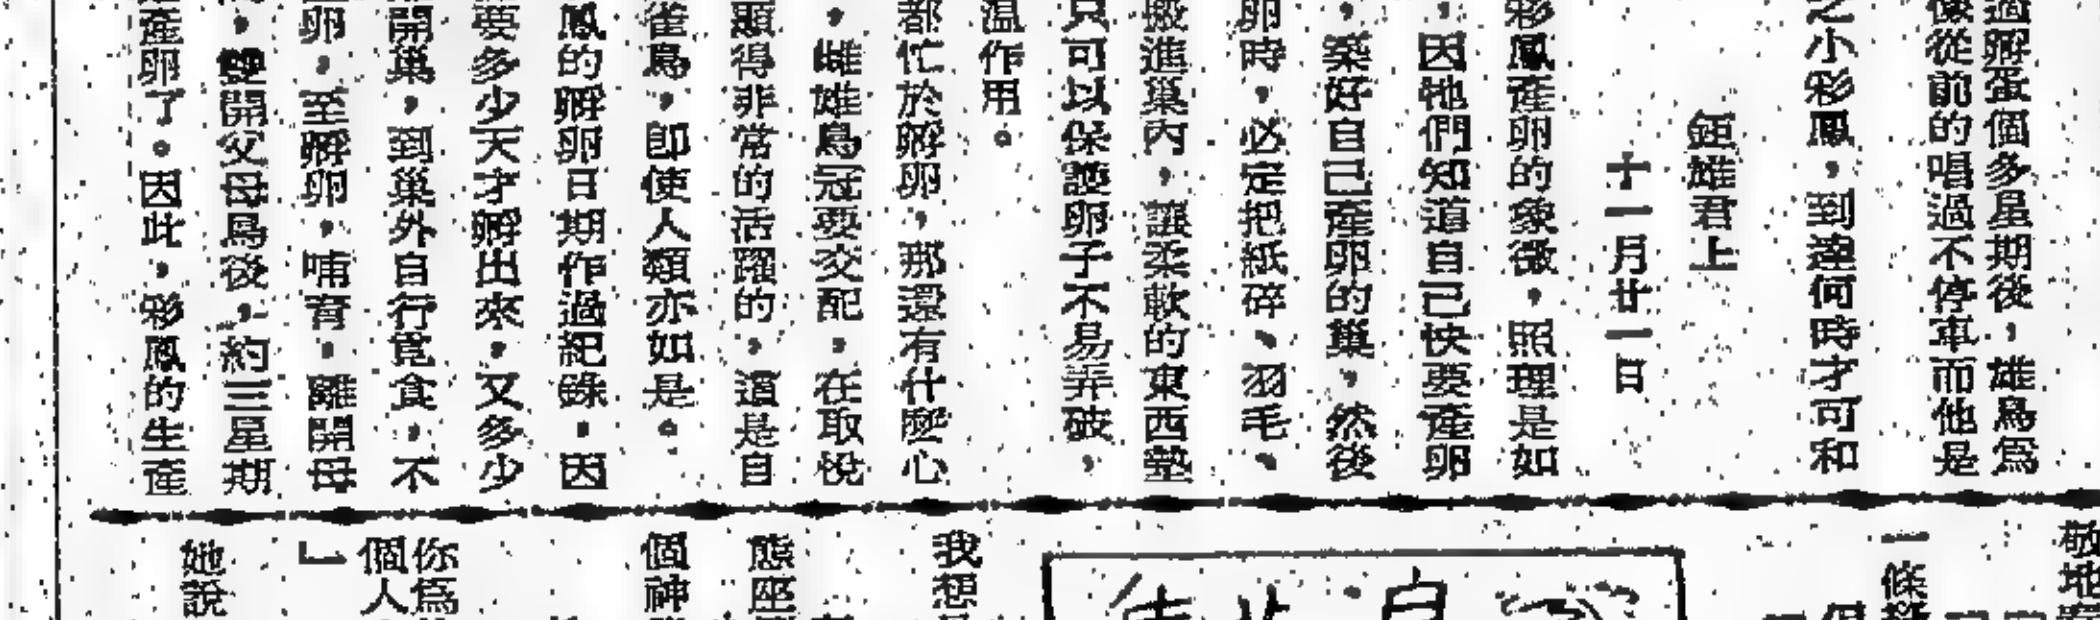 過孵蛋個多星期後，雄鳥爲
像從前的唱過不停車而他是
之小彩鳳，到達何時才可和
鉅雄君上
十一月廿一日
彩鳳產卵的象徵，照理是如
，因牠們知道自己快要產卵
，築好自己產卵的巢，然後
卵時，必定把紙碎、羽毛、
搬進巢內，讓柔軟的東西墊
只可以保護卵子不易弄破，
温作用。
都忙於孵卵，那還有什麼心
，雌雄鳥冠要交配，在取悅
顯得非常的活躍的，這是自
雀鳥，即使人類亦如是。
鳳的孵卵日期作過紀錄，因
要多少天才孵出來，又多少
開巢，到巢外自行覓食，不
卵，至孵卵，哺育，離開母
，雙開父母鳥後，約三星期
產卵了。因此，彩鳳的生產
敬地
一條
我想
態座
個神
你爲
個人
」
她說